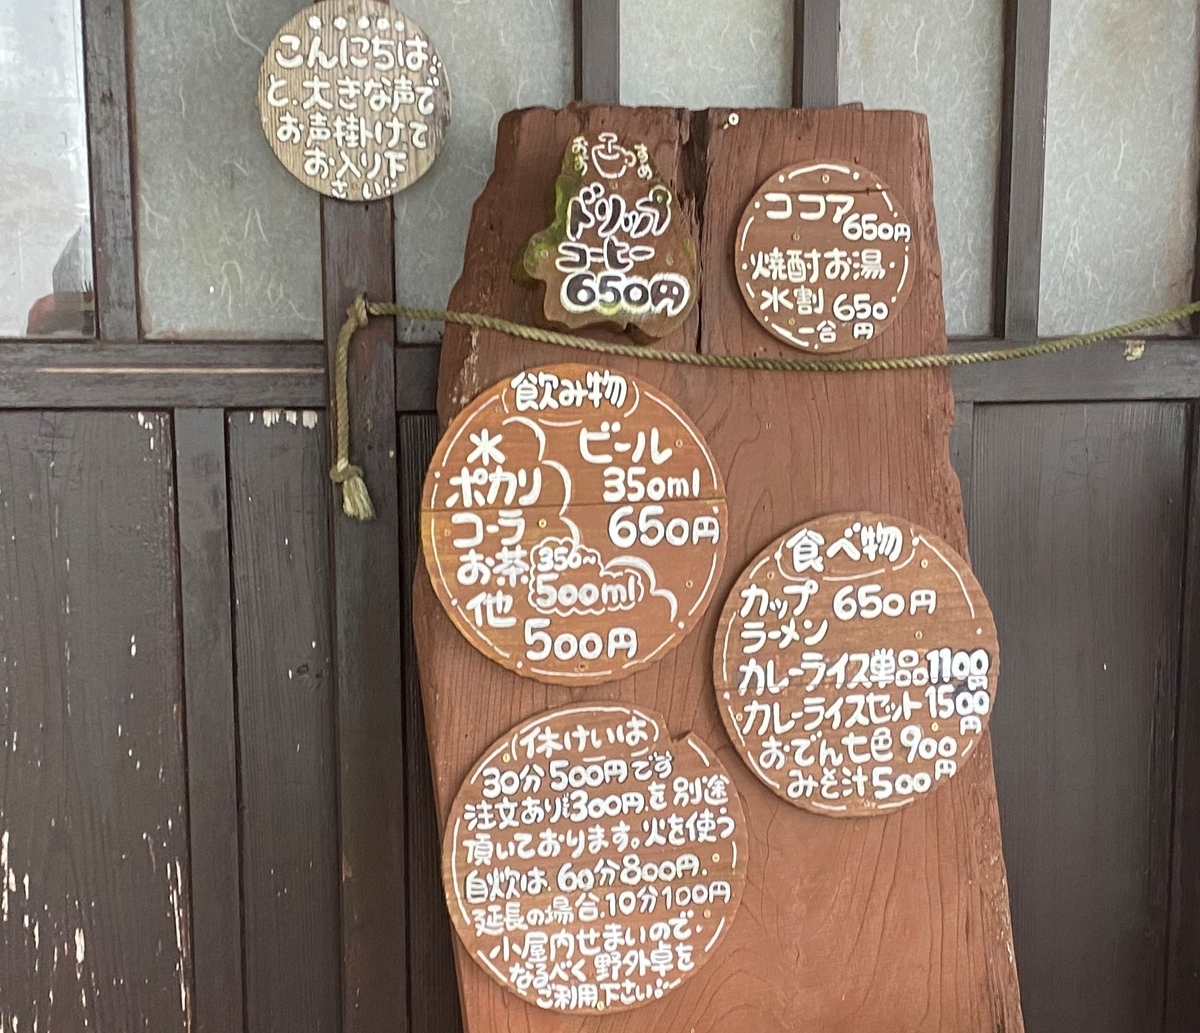 こんにちは
と.大きな声で
お声掛けて
お入り下
さい
おすすめ
ドリップ
コーヒー
650円
ココア
650円
焼酎お湯
水割 650
一合 円
飲み物
水
ポカリ
コーラ
お茶
他
350〜
500ml
500円
ビール
350ml
650円
食べ物
カップ 650円
ラーメン
カレーライス単品1100円
カレーライスセット1500円
おでん七色 900円
みそ汁500円
休けいは
30分500円です
注文あり300円.を別途
頂いております。火を使う
自炊は.60分800円.
延長の場合.10分100円
小屋内せまいので
なるべく野外卓を
ご利用下さい